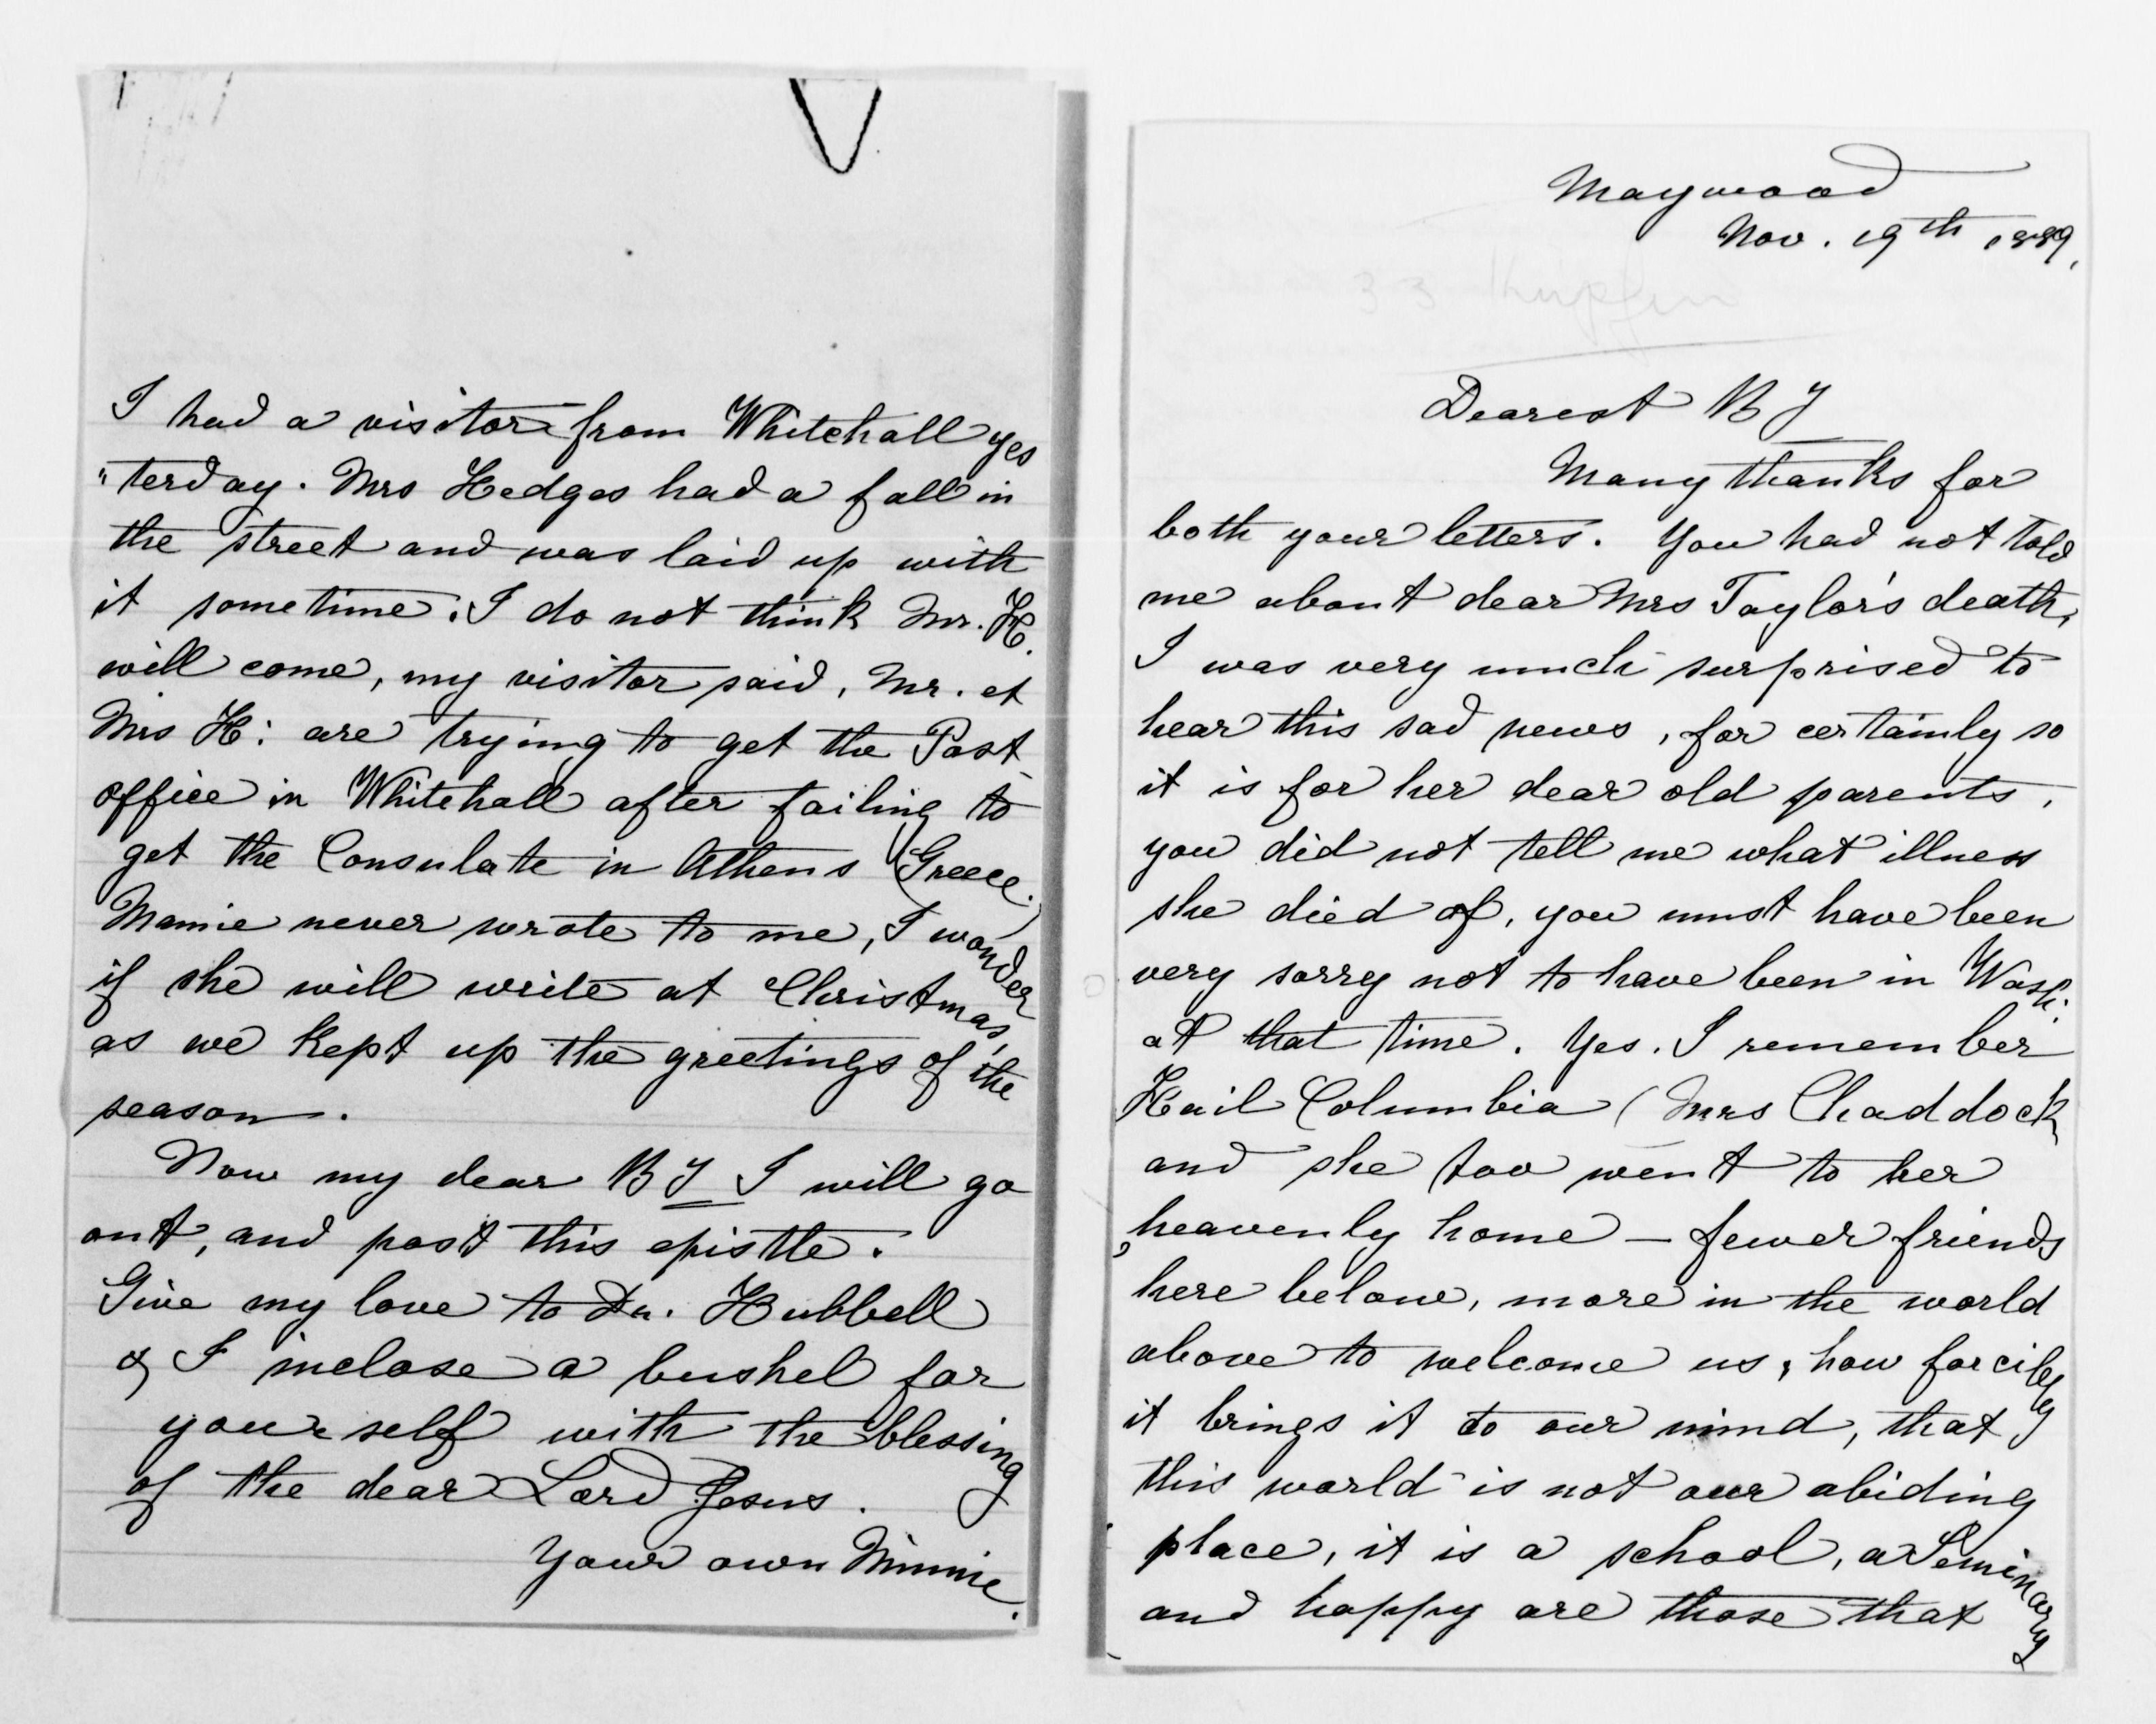 I had a visitor from Whitehall yes
"terday. Mrs Hedges had a fall in
the street and was laid up with
it sometime. I do not think Mr. H.
will come, my visitor said, Mr. et
Mrs H: are trying to get the Post
office in Whitehall after failing to
get the Consulate in Athens (Greece.)
Mamie never wrote to me, I wonder
if she will write at Christmas,
as we kept up the greetings of the
season.
Now my dear B Y I will go
out, and post this epistle.
Give my love to Dr. Hubbell
& I inclose a bushel for
yourself with the blessing
of the dear Lord Jesus.
Your own Minnie.
Maywood
Nov. 19th 1889,
33
Dearest B Y
Many thanks for
both your letters. You had not told
me about dear Mrs Taylor's death,
I was very much surprised to
hear this sad news, for certainly so
it is for her dear old parents,
you did not tell me what illness
she died of, you must have been
very sorry not to have been in Wash.
at that time. Yes. I remember
Hail Columbia (Mrs Chaddock
and she too went to her
heavenly home — fewer friends
here below, more in the world
above to welcome us, how forcibly
it brings it to our mind, that
this world is not our abiding
place, it is a school, a Seminary
and happy are those that